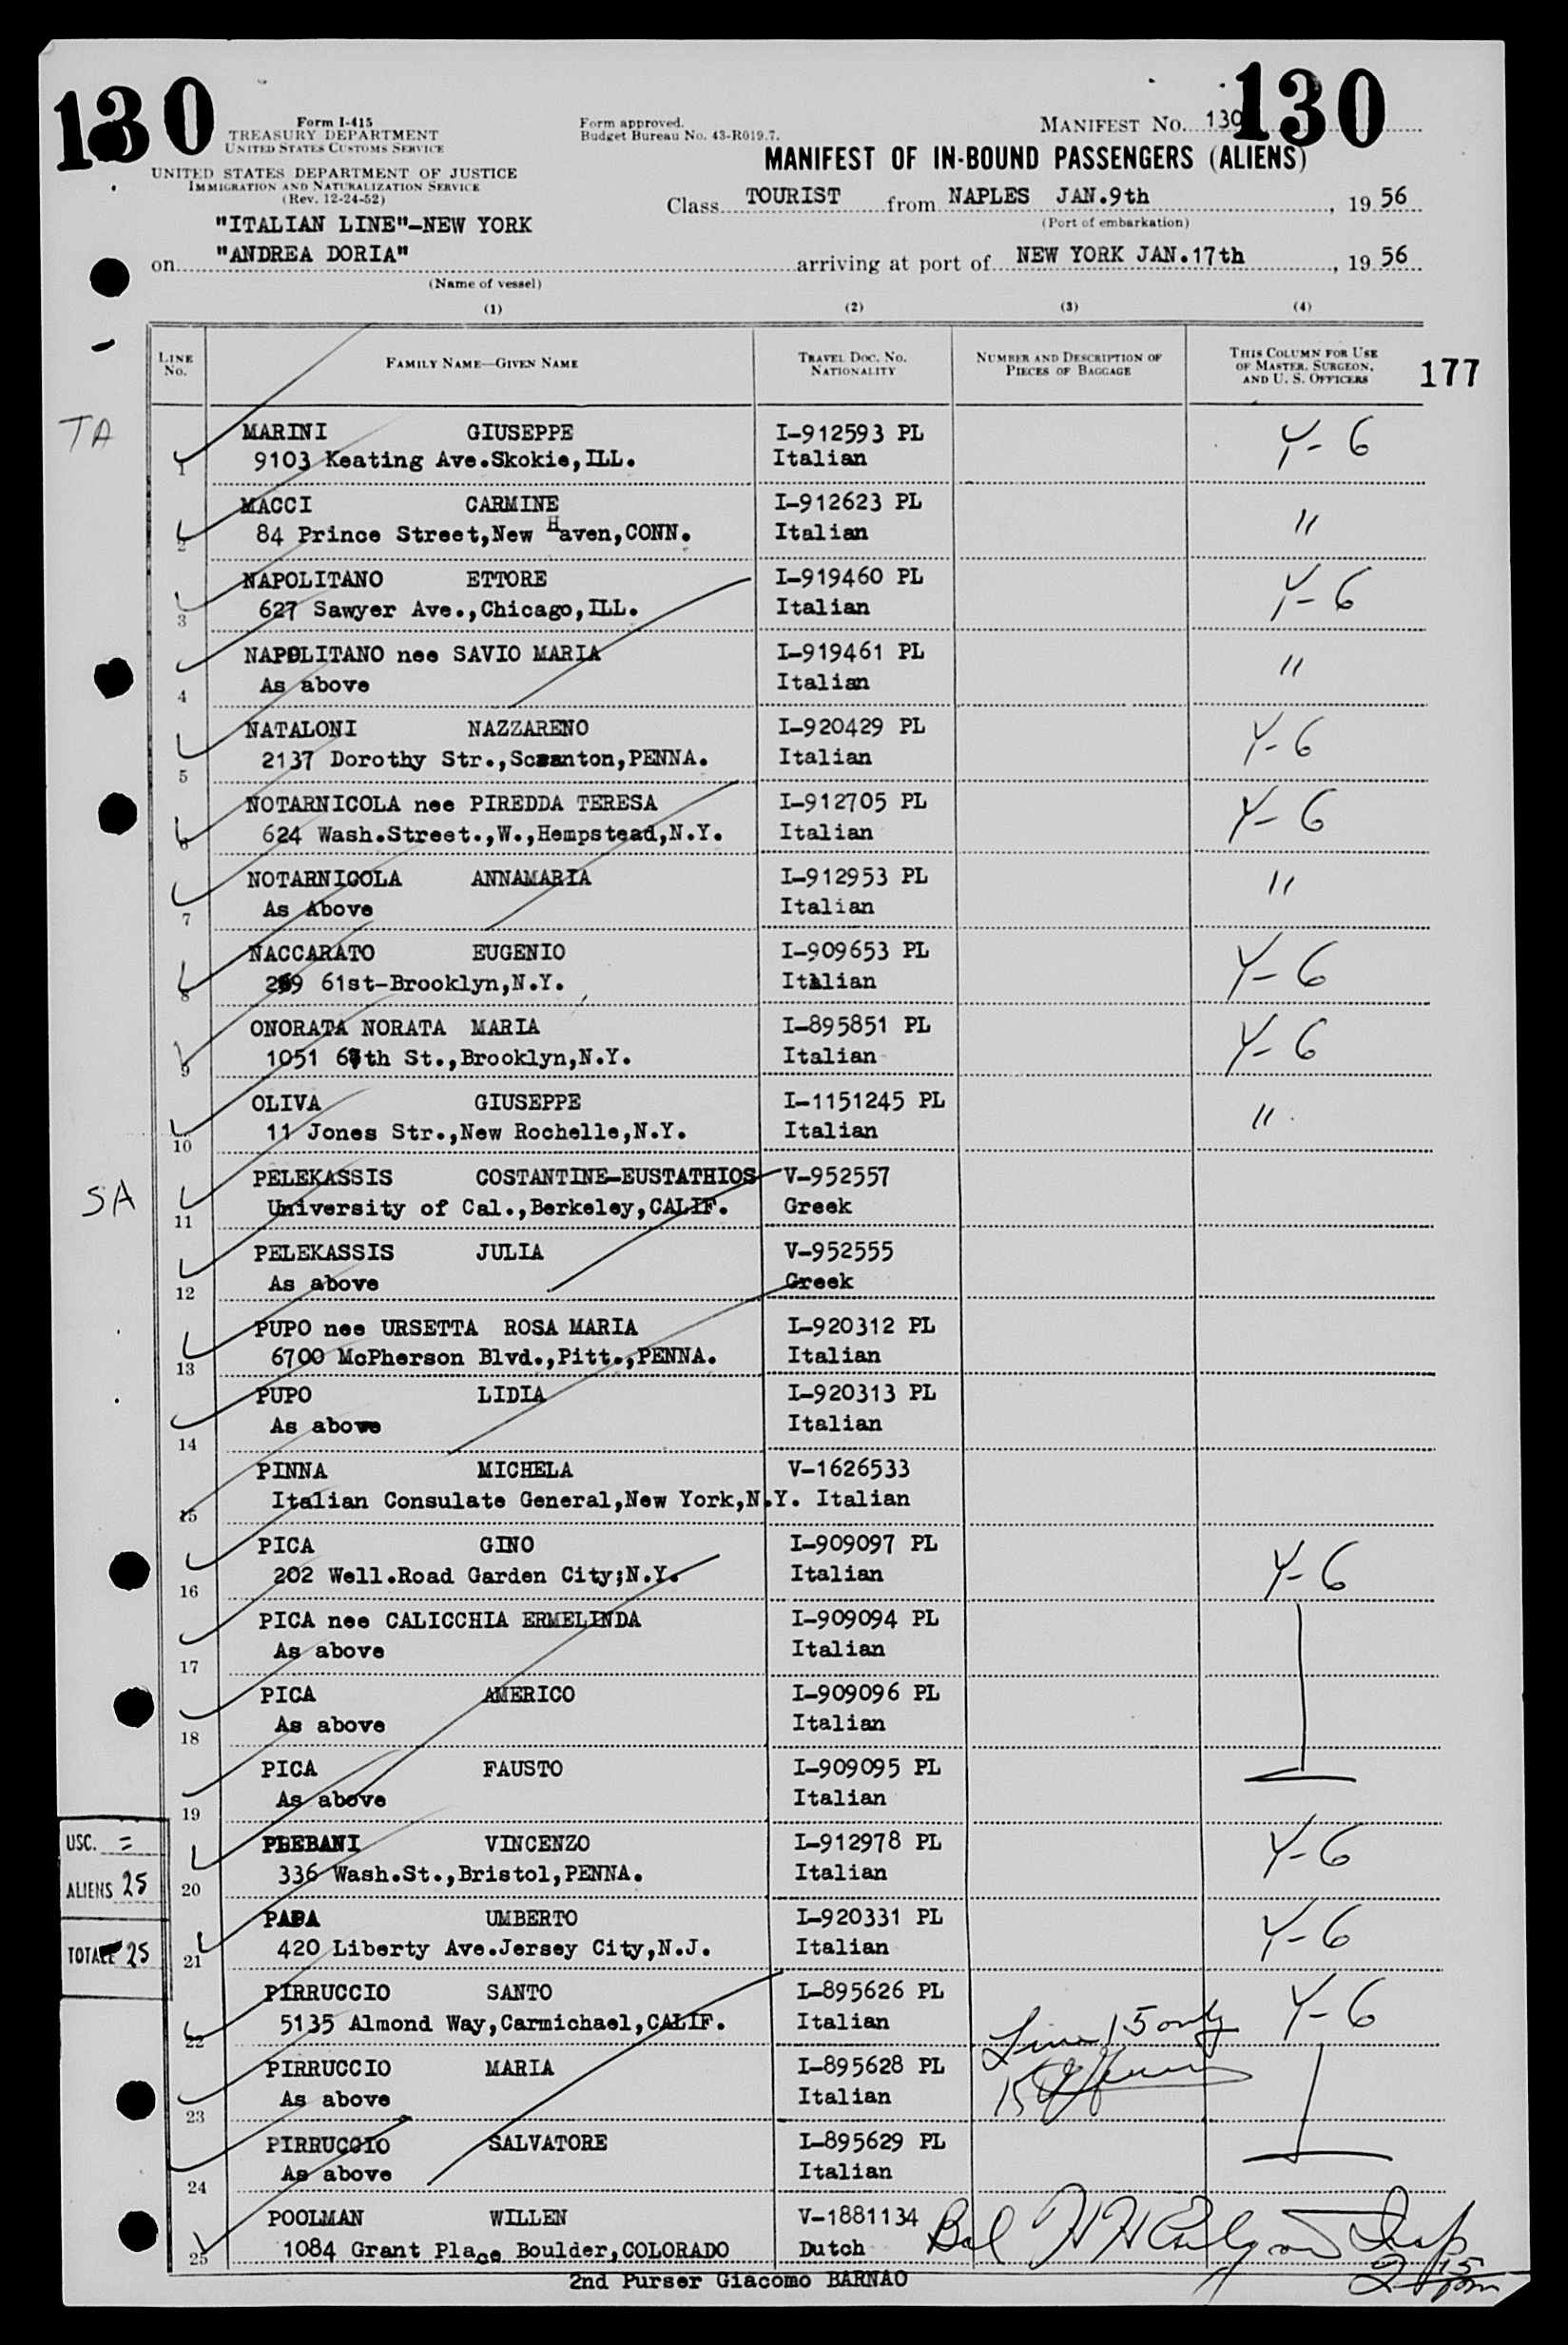 130
130
Form I-415
TREASURY DEPARTMENT
UNITED STATES CUSTOMS SERVICE
UNITED STATES DEPARTMENT OF JUSTICE
IMMIGRATION AND NATURALIZATION SERVICE
(Rev. 12-24-52)
Form approved.
Budget Bureau No. 43-R019.7.
MANIFEST No. 130
MANIFEST OF IN-BOUND PASSENGERS (ALIENS)
Class TOURIST from NAPLES JAN.9th, 19 56
(Port of embarkation)
"ITALIAN LINE"-NEW YORK
on "ANDREA DORIA" arriving at port of NEW YORK JAN.17th, 19 56
(Name of vessel)
(1) (2) (3) (4)
LINE No. FAMILY NAME—GIVEN NAME TRAVEL DOC. NO. NATIONALITY NUMBER AND DESCRIPTION OF PIECES OF BAGGAGE THIS COLUMN FOR USE OF MASTER, SURGEON, AND U. S. OFFICERS
177
TA
MARINI GIUSEPPE I-912593 PL Y-6
1 9103 Keating Ave.Skokie,ILL. Italian
MACCI CARMINE I-912623 PL "
2 84 Prince Street,New Haven,CONN. Italian
NAPOLITANO ETTORE I-919460 PL Y-6
3 627 Sawyer Ave.,Chicago,ILL. Italian
NAPOLITANO nee SAVIO MARIA I-919461 PL "
4 As above Italian
NATALONI NAZZARENO I-920429 PL Y-6
5 2137 Dorothy Str.,Scranton,PENNA. Italian
NOTARNICOLA nee PIREDDA TERESA I-912705 PL Y-6
6 624 Wash.Street.,W.,Hempstead,N.Y. Italian
NOTARNICOLA ANNAMARIA I-912953 PL "
7 As Above Italian
NACCARATO EUGENIO I-909653 PL Y-6
8 61st-Brooklyn,N.Y. Italian
ONORATA NORATA MARIA I-895851 PL Y-6
9 1051 St.,Brooklyn,N.Y. Italian
OLIVA GIUSEPPE I-1151245 PL "
10 11 Jones Str.,New Rochelle,N.Y. Italian
SA
PELEKASSIS COSTANTINE-EUSTATHIOS V-952557
11 University of Cal.,Berkeley,CALIF. Greek
PELEKASSIS JULIA V-952555
12 As above Greek
PUPO nee URSETTA ROSA MARIA I-920312 PL
13 6700 McPherson Blvd.,Pitt.,PENNA. Italian
PUPO LIDIA I-920313 PL
14 As above Italian
PINNA MICHELA V-1626533
15 Italian Consulate General,New York,N.Y. Italian
PICA GINO I-909097 PL Y-6
16 202 Well.Road Garden City;N.Y. Italian
PICA nee CALICCHIA ERMELINDA I-909094 PL
17 As above Italian
PICA AMERICO I-909096 PL
18 As above Italian
PICA FAUSTO I-909095 PL
19 As above Italian
USC. =
ALIENS 25
TOTAL 25
VINCENZO I-912978 PL Y-6
20 336 Wash.St.,Bristol,PENNA. Italian
UMBERTO I-920331 PL Y-6
21 420 Liberty Ave.Jersey City,N.J. Italian
PIRRUCCIO SANTO I-895626 PL Y-6
22 5135 Almond Way,Carmichael,CALIF. Italian
Line 15 only
PIRRUCCIO MARIA I-895628 PL
23 As above Italian
PIRRUCCIO SALVATORE I-895629 PL
24 As above Italian
POOLMAN WILLEN V-1881134
25 1084 Grant Place Boulder,COLORADO Dutch
Bal Insp
2nd Purser Giacomo BARNAO